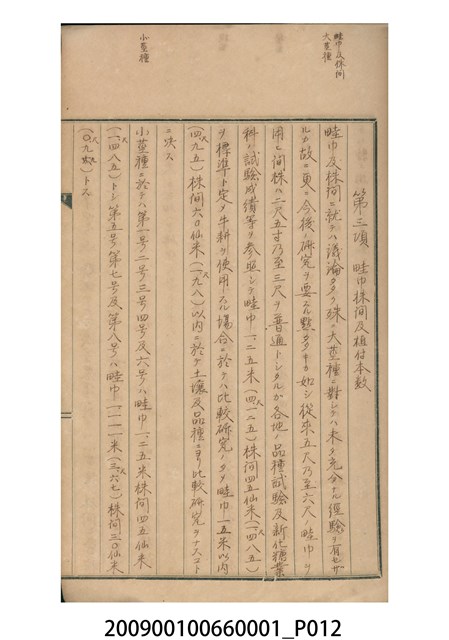 畦巾及株间
大莖種
小莖種
第三項 畦巾株间及植付本数
畦巾及株间ニ就テハ議論多ク殊ニ大莖種ニ對シテハ未タ充分ナル經驗ヲ有セザ
ルガ故ニ更ニ今後ノ研究ヲ要スル點多キカ如シ從来五尺乃至六尺ノ畦巾ヲ
用ヒ株间ハ二尺五寸乃至三尺ヲ普通トシタルカ各地ノ品種試驗及新化糖業
料ノ試驗成績等ヲ参照シテ畦巾一.二五米(四.一二五)株间四五仙米(一.四八五)
ヲ標準ト定メ牛耕ヲ使用スル場合ニ於テハ比較研究ノタメ畦巾一.五米以内
(四.九五)株间六〇仙米(一.九八)以内ニ於テ土壤及品種ニヨリ比較研究ヲナスコト
ニ決ス
小莖種ニ於テハ第一号二号三号四号及六号ハ畦巾一.二五米株间四五仙米
(一.四八五)トシ第五号第七号及第八号ハ畦巾一.一一米(三.六六七)株间三〇仙米
(〇.九九)トス
200900100660001_P012